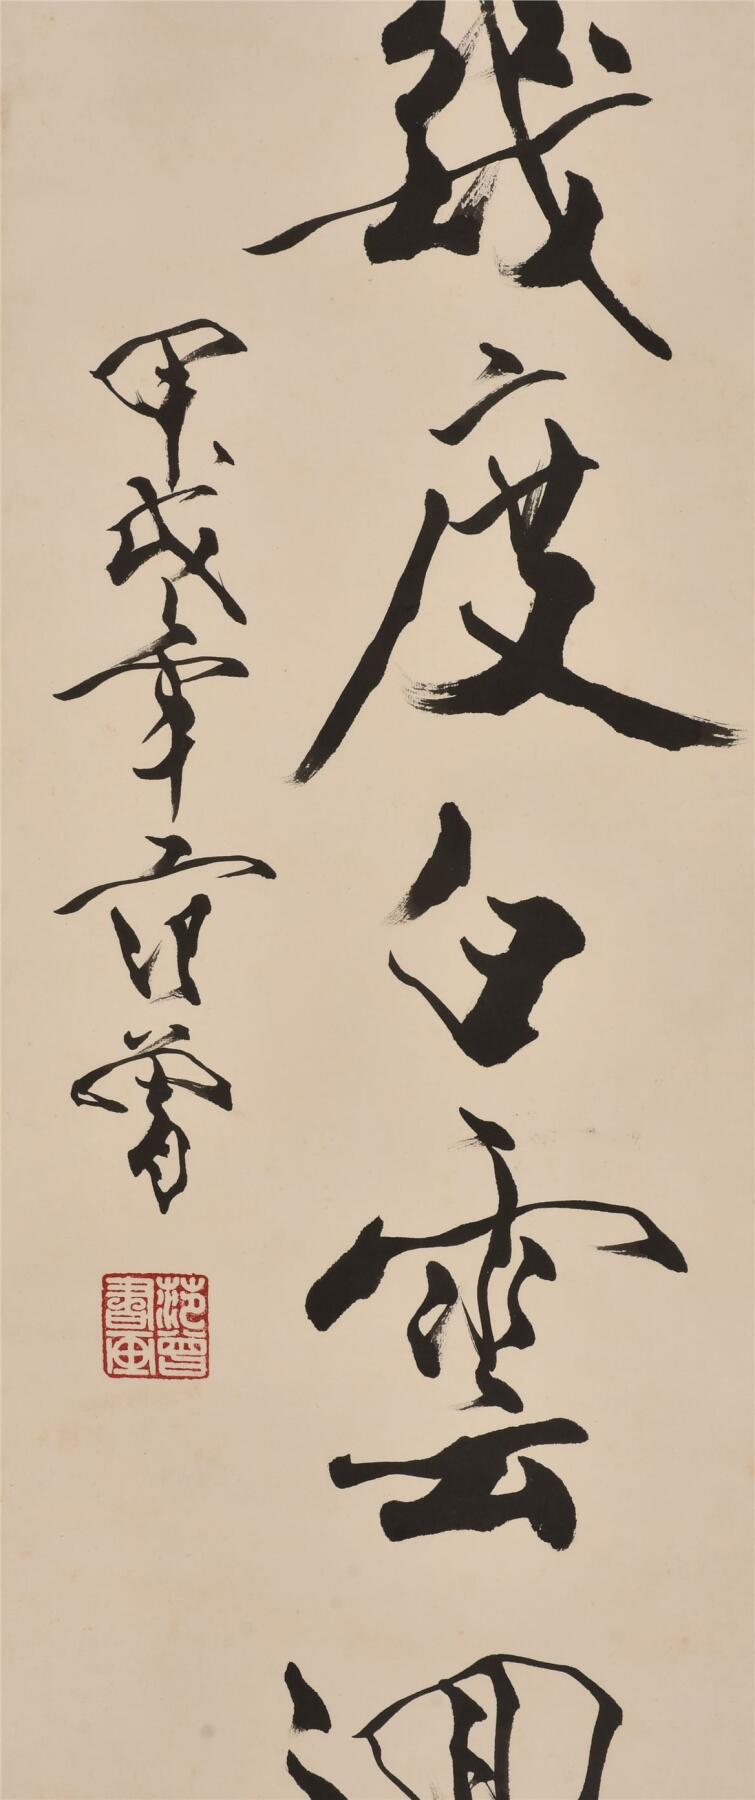 幾度白雲
甲戌年范曾
范曾書畫